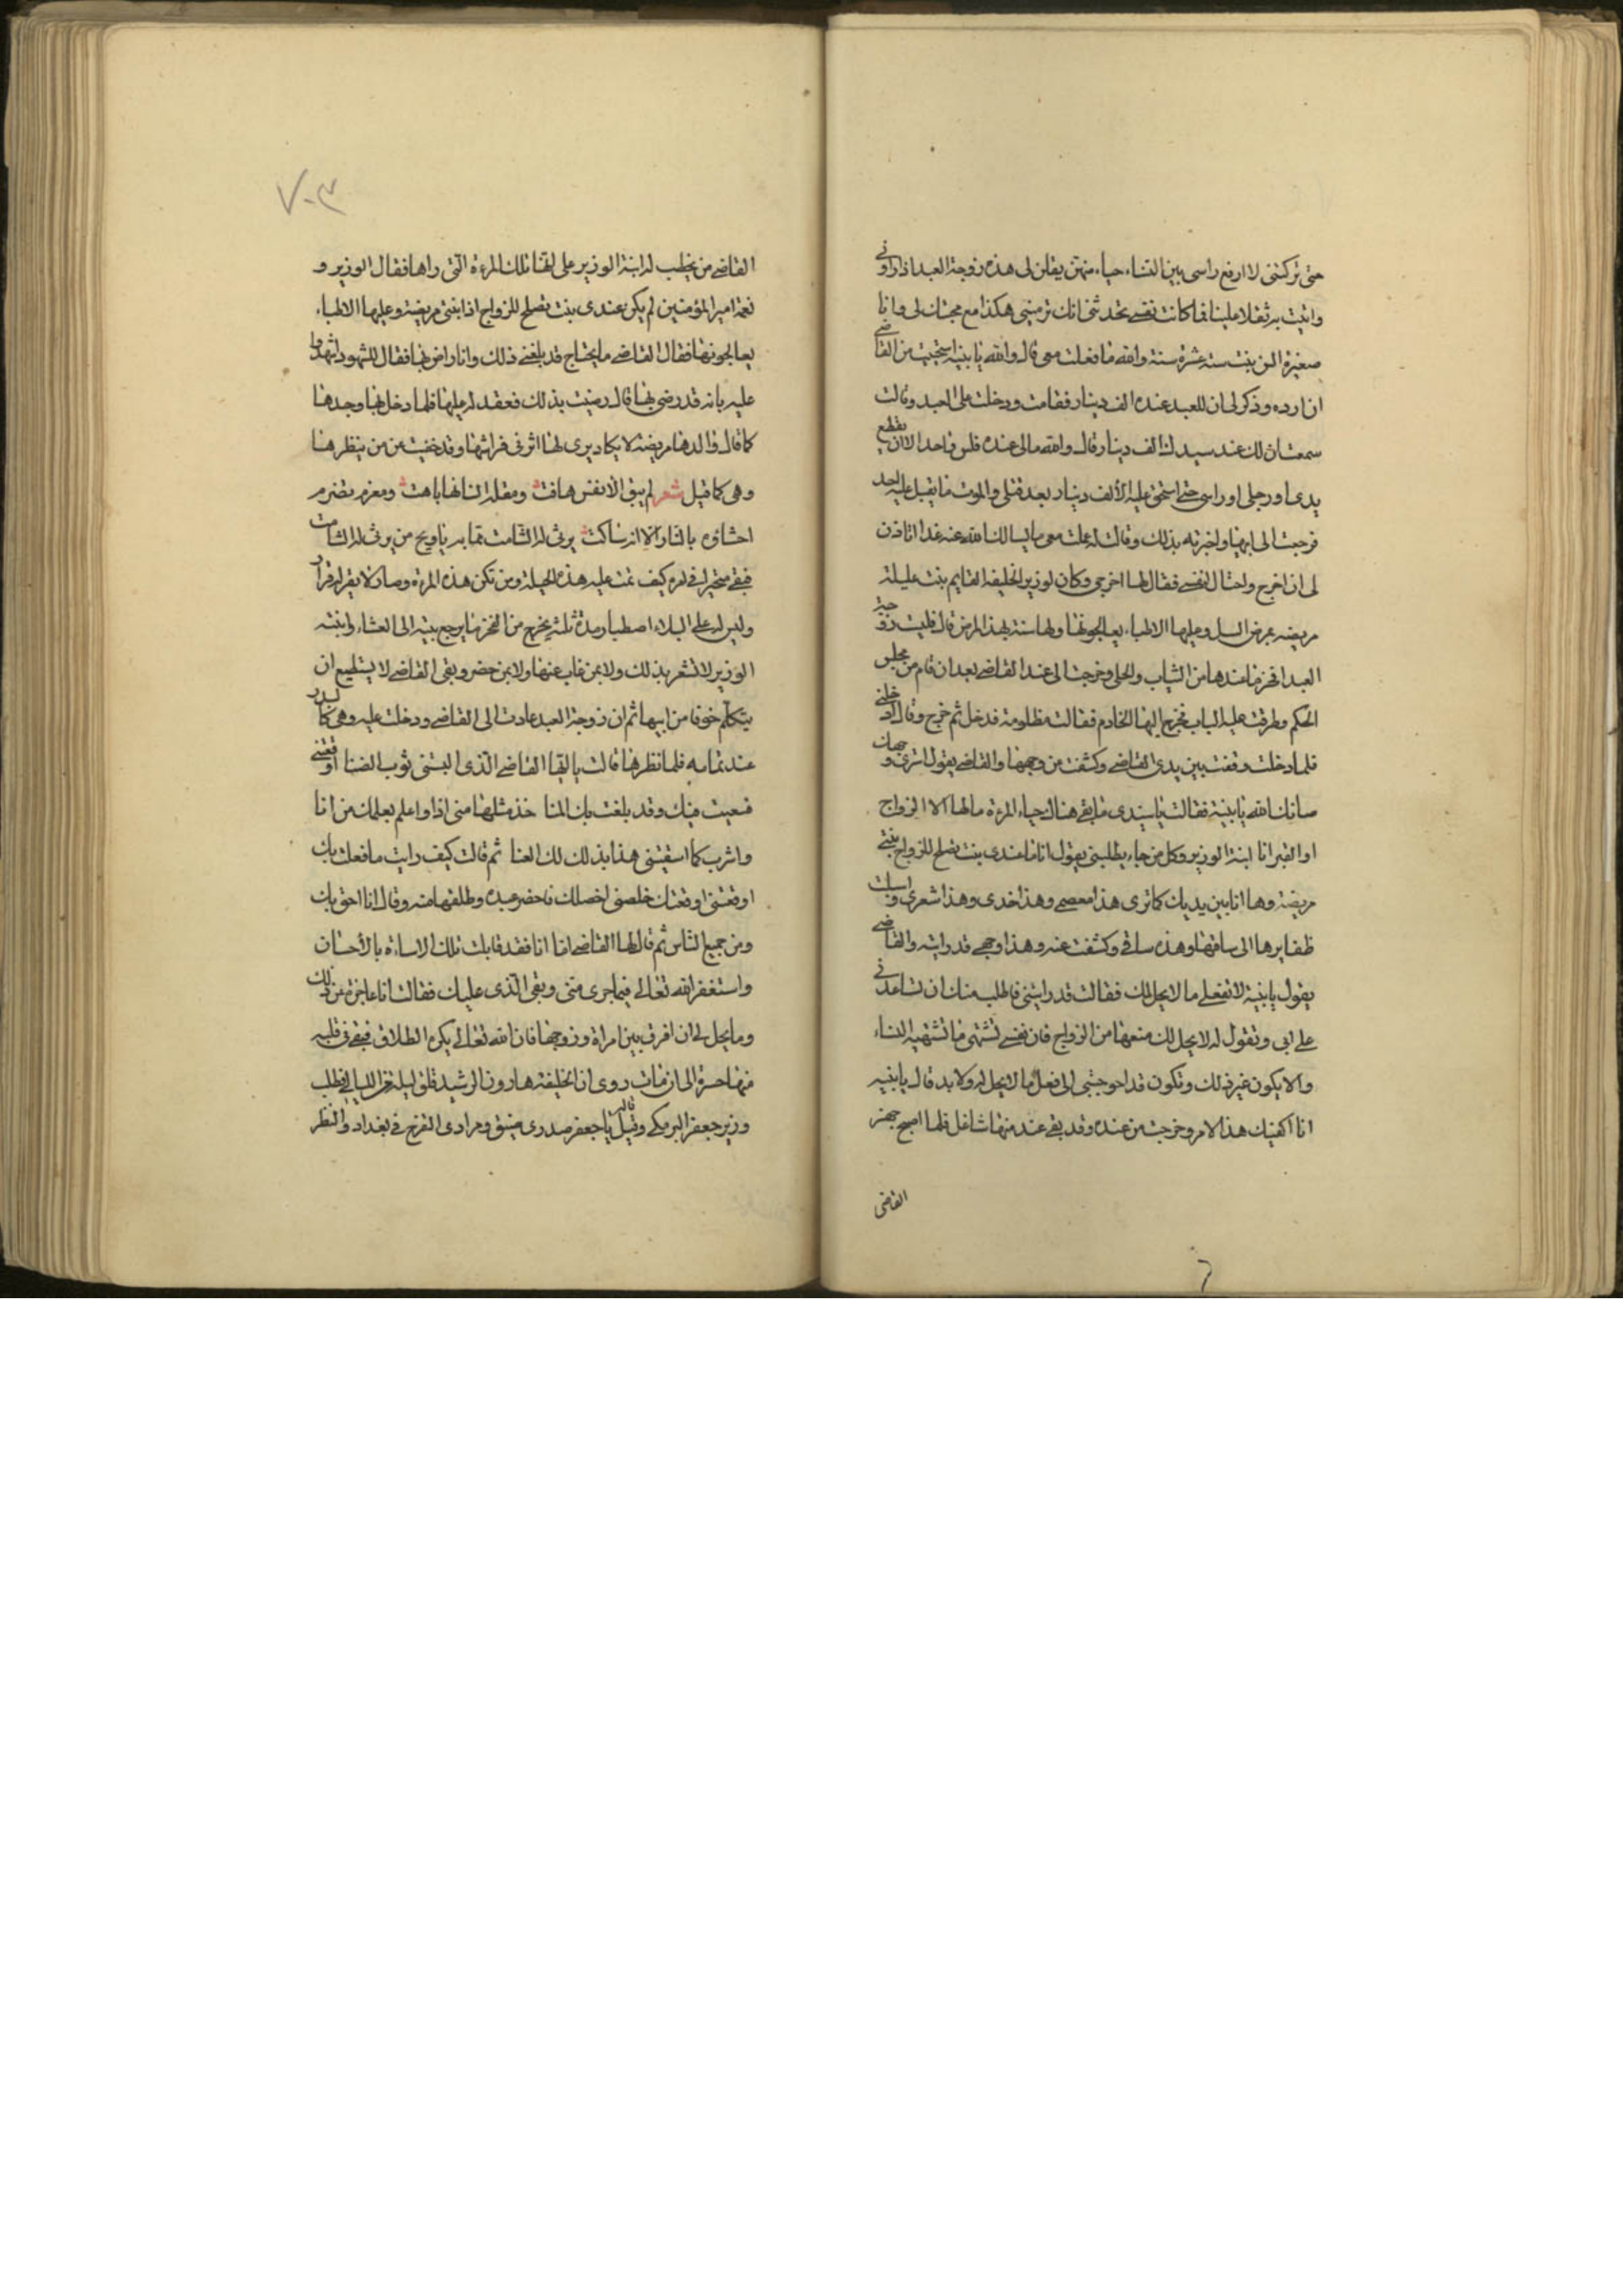 حتى تركتنى لا ارفع راسى بين النساء حياء منهن يقلن لى هذه زوجة العبد اذا راونى
واتيت به ثقلا علينا فما كانت نفسى تحدثنى انك ترمينى هكذا مع محبتك لى وانا
صغيرة السن بنت ستة عشرة سنة والله ما فعلت معى قال والله يا بنية استحييت من القاضى
ان ارده وذكر لى ان للعبد عنده الف دينار فقامت ودخلت على العبد وقالت
سمعت ان لك عند سيدك الف دينار قال والله مالى عنده فلس واحد الا ان يقطع
يدى او رجلى او راسى حتى استحق عليه الألف دينار بعد قتلى والموت ما يقبل عليه احد
فرجعت الى ابيها واخبرته بذلك وقالت له عملت معى ما يسالك الله عنه غدا اتاذن
لى ان اخرج واحتال لنفسى فقال لها اخرجى وكان لوزير الخليفة القايم بنت عليلة
مريضه بمرض السل وعليها الاطباء يعالجونها ولها سنة بهذا المرض قال فلبست زوجة
العبد افخر ما عندها من الثياب والحلى وخرجت الى عند القاضى بعد ان قام من مجلس
الحكم وطرقت عليه الباب فخرج اليها الخادم فقالت مظلومة فدخل ثم خرج وقال ادخلى
فلما دخلت وقفت بين يدى القاضى وكشفت عن وجهها والقاضى يقول استرى وجهك
صانك الله يا بنية فقالت يا سيدى ما بقى هناك حياء المرءة ما لها الا الزواج
او القبر انا ابنة الوزير وكل من جاء يطلبنى يقول انا ما عندى بنت تصلح للزواج بنتى
مريضة وها انا بين يديك كما ترى هذا معصمى وهذا خدى وهذا شعرى واسبلت
ظفايرها الى ساقها وهذه ساقى وكشفت عنه وهذا وجهى قد رايته والقاضى
يقول يا بنية لا تفعلى ما لا يحل لك فقالت قد رايتنى فاطلب منك ان تساعدنى
على ابى وتقول له لا يحل لك منعها من الزواج فان نفسى تشتهى ما تشتهيه النساء
والا يكون غير ذلك وتكون قد احوجتنى الى فعل ما لا يحل له ولا بد قال يا بنيه
انا اكفيك هذا الامر وخرجت من عنده وقد بقى عنده منها شاغل فلما اصبح جهز
القاضى
٧٠٣
القاضى من يخطب له ابنة الوزير على انها تلك المرءة التى راها فقال الوزير و
نعمة امير المؤمنين لم يكن عندى بنت تصلح للزواج اذا بنتى مريضة وعليها الاطباء
يعالجونها فقال القاضى ما يحتاج قد بلغنى ذلك وانا راض بها فقال للشهود اشهدوا
عليه بانه قد رضى بها قال رضيت بذلك فعقد له عليها فلما دخل بها وجدها
كما قال والدها مريضة لا يكاد يرى لها اثر فى فراشها وقد خفيت عن من ينظرها
وهى كما قيل شعر لم يبق الا نفس هافت ومقلة انسانها باهت ومغرم تضرم
احشاؤه بالنار الا انه ساكت يرثى له الشامت مما به يا ويح من يرثى له الشامت
فبقى متحيرا فى امره كيف تمت عليه هذه الحيلة ومن تكن هذه المرءة وصار لا يقر له قرار
وليس له على البلاء اصطبار ومدة ثلثة يخرج من الفجر ما يرجع بيته الى العشاء وابنته
الوزير لا تشعر بذلك ولا بمن غاب عنها ولا بمن حضر وبقى القاضى لا يستطيع ان
يتكلم خوفا من ابيها ثم ان زوجة العبد عادت الى القاضى ودخلت عليه وهى كالبدر
عند تمامه فلما نظرها قالت يا ايها القاضى الذى البستنى ثوب الضنا اوقعتنى
فسعيت فيك وقد بلغت بك المنا خذ مثلها منى اذا واعلم بعلمك من انا
واشرب كما اسقيتنى هذا بذلك لك الهنا ثم قالت كيف رايت ما فعلت بك
اوقعتنى اوقعتك خلصنى اخلصك فاحضر عبده وطلقها منه وقال انا احق بك
ومن جميع الناس ثم قال لها القاضى اما انا فقد قابلت تلك الاساءة بالأحسان
واستغفر الله تعالى فيما جرى منى وبقى الذى عليك فقالت انا عاجزة عن ذلك
وما يحل لى ان افرق بين امراة وزوجها فان الله تعالى يكره الطلاق فبقى فى قلبه
منها حسرة الى ان مات روى ان الخليفة هارون الرشيد قلق ليلة من الليالى فطلب
وزيره جعفر البرمكى وقال له يا جعفر صدرى ضيق ومرادى التفرج فى بغداد والنظر